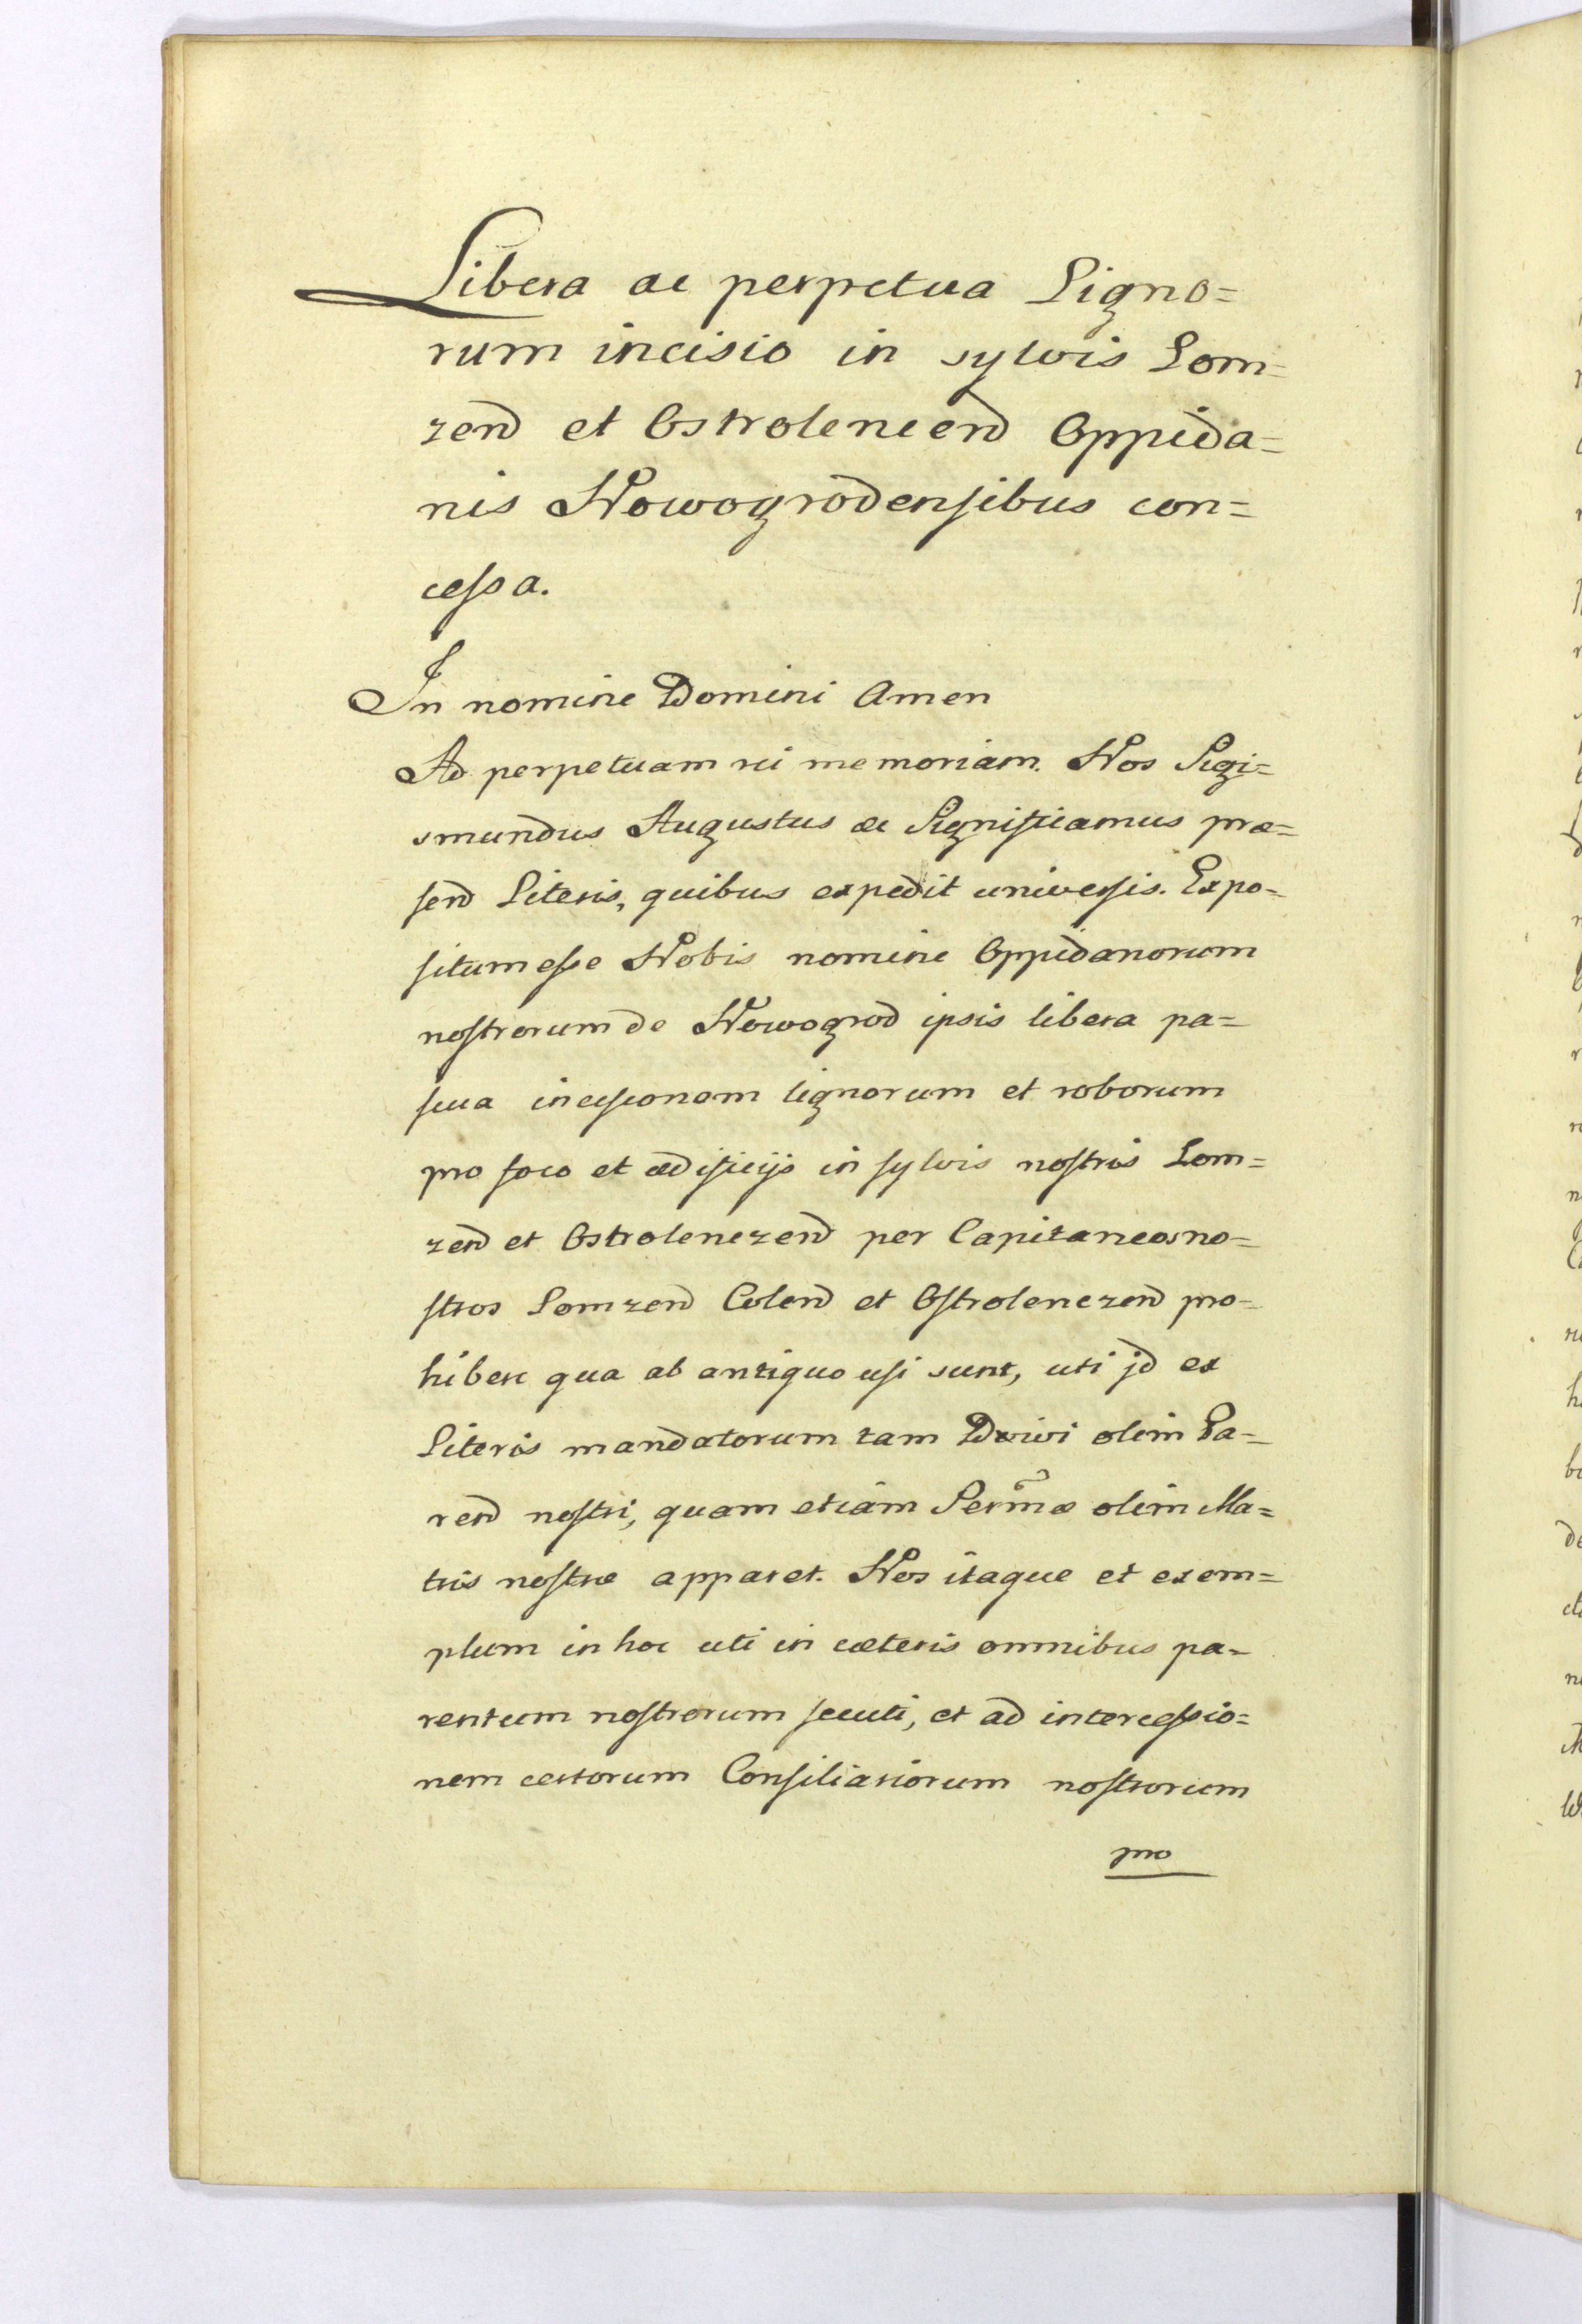 Libera ac perpetua Ligno=
rum incisio in sylvis Lom=
zend et Ostrolencend Oppida=
nis Nowogrodensibus con=
cessa.
In nomine Domini Amen
Ad perpetuam rei memoriam. Nos Sigi=
smundus Augustus &c Significamus præ=
send Literis, quibus expedit universis. Expo=
situm esse Nobis nomine Oppidanorum
nostrorum de Nowogrod ipsis libera pa=
scua incisionem lignorum et roborum
pro foco et ædificijs in sylvis nostris Lom=
zend et Ostrolenczend per Capitaneos no=
stros Lomzend Colend et Ostrolenczend pro=
hibere qua ab antiquo usi sunt, uti jd ex
Literis mandatorum tam Divi olim Pa=
rend nostri, quam etiam Sermæ olim Ma=
tris nostræ apparet. Nos itaque et exem=
plum in hoc uti in cæteris omnibus pa=
rentum nostrorum secuti, et ad intercessio=
nem certorum Consiliariorum nostrorum
pro